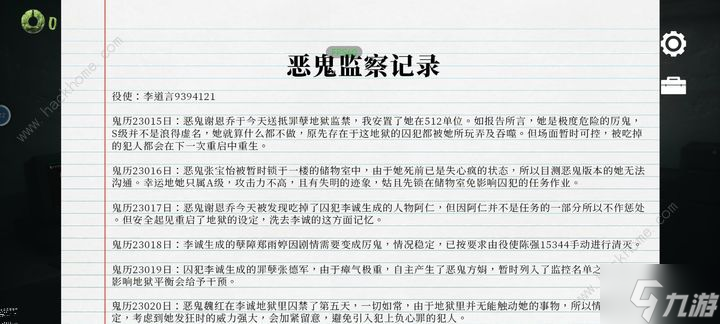 0
恶鬼监察记录
役使：李道言9394121
鬼历23015日：恶鬼谢恩乔于今天送抵罪孽地狱监禁，我安置了她在512单位。如报告所言，她是极度危险的厉鬼，
S级并不是浪得虚名，她就算什么都不做，原先存在于这地狱的囚犯都被她所玩弄及吞噬。但场面暂时可控，被吃掉
的犯人都会在下一次重启中重生。
鬼历23016日：恶鬼张宝怡被暂时锁于一楼的储物室中，由于她死前已是失心疯的状态，所以目测恶鬼版本的她无法
沟通。幸运地她只属A级，攻击力不高，且有失明的迹象，姑且先锁在储物室免影响囚犯的任务作业。
鬼历23017日：恶鬼谢恩乔今天被发现吃掉了囚犯李诚生成的人物阿仁，但因阿仁并不是任务的一部分所以不作惩处
。但安全起见重启了地狱的设定，洗去李诚的这方面记忆。
鬼历23018日：李诚生成的孽障郑雨婷因剧情需要变成厉鬼，情况稳定，已按要求由役使陈强15344手动进行清灭。
鬼历23019日：囚犯李诚生成的罪孽张德军，由于瘴气极重，自主产生了恶鬼方娟，暂时列入了监控名单之
影响地狱平衡会给予干预。
鬼历23020日：恶鬼魏红在李诚地狱里囚禁了第五天，一切如常，由于地狱里并无能触动她的事物，所以情
定，考虑到她发狂时的威力强大，会加紧留意，避免引入犯上负心罪的犯人。
www.hackhome.com
九游